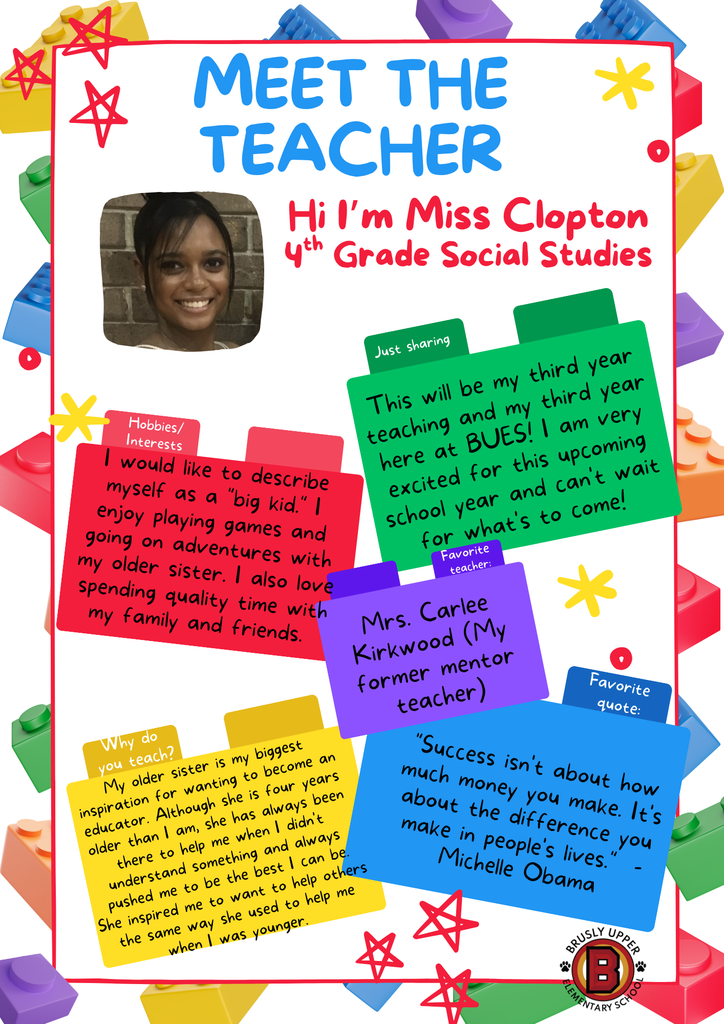 MEET THE
TEACHER
Hi I'm Miss Clopton
4th Grade Social Studies
Just sharing
This will be my third year
teaching and my third year
here at BUES! I am very
excited for this upcoming
school year and can't wait
for what's to come!
Hobbies/
Interests
I would like to describe
myself as a "big kid." I
enjoy playing games and
going on adventures with
my older sister. I also love
spending quality time with
my family and friends.
Favorite
teacher:
Mrs. Carlee
Kirkwood (My
former mentor
teacher)
Favorite
quote:
"Success isn't about how
much money you make. It's
about the difference you
make in people's lives." -
Michelle Obama
Why do
you teach?
My older sister is my biggest
inspiration for wanting to become an
educator. Although she is four years
older than I am, she has always been
there to help me when I didn't
understand something and always
pushed me to be the best I can be.
She inspired me to want to help others
the same way she used to help me
when I was younger.
BRUSLY UPPER
B
ELEMENTARY SCHOOL